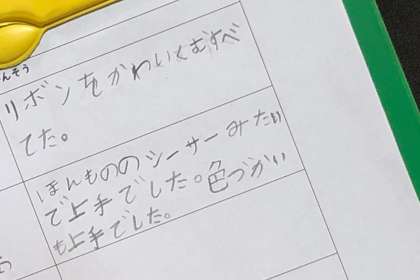 んそう
リボンをかわいくむすべ
てた。
ほんもののシーサーみたい
で上手でした。色づかい
も上手でした。